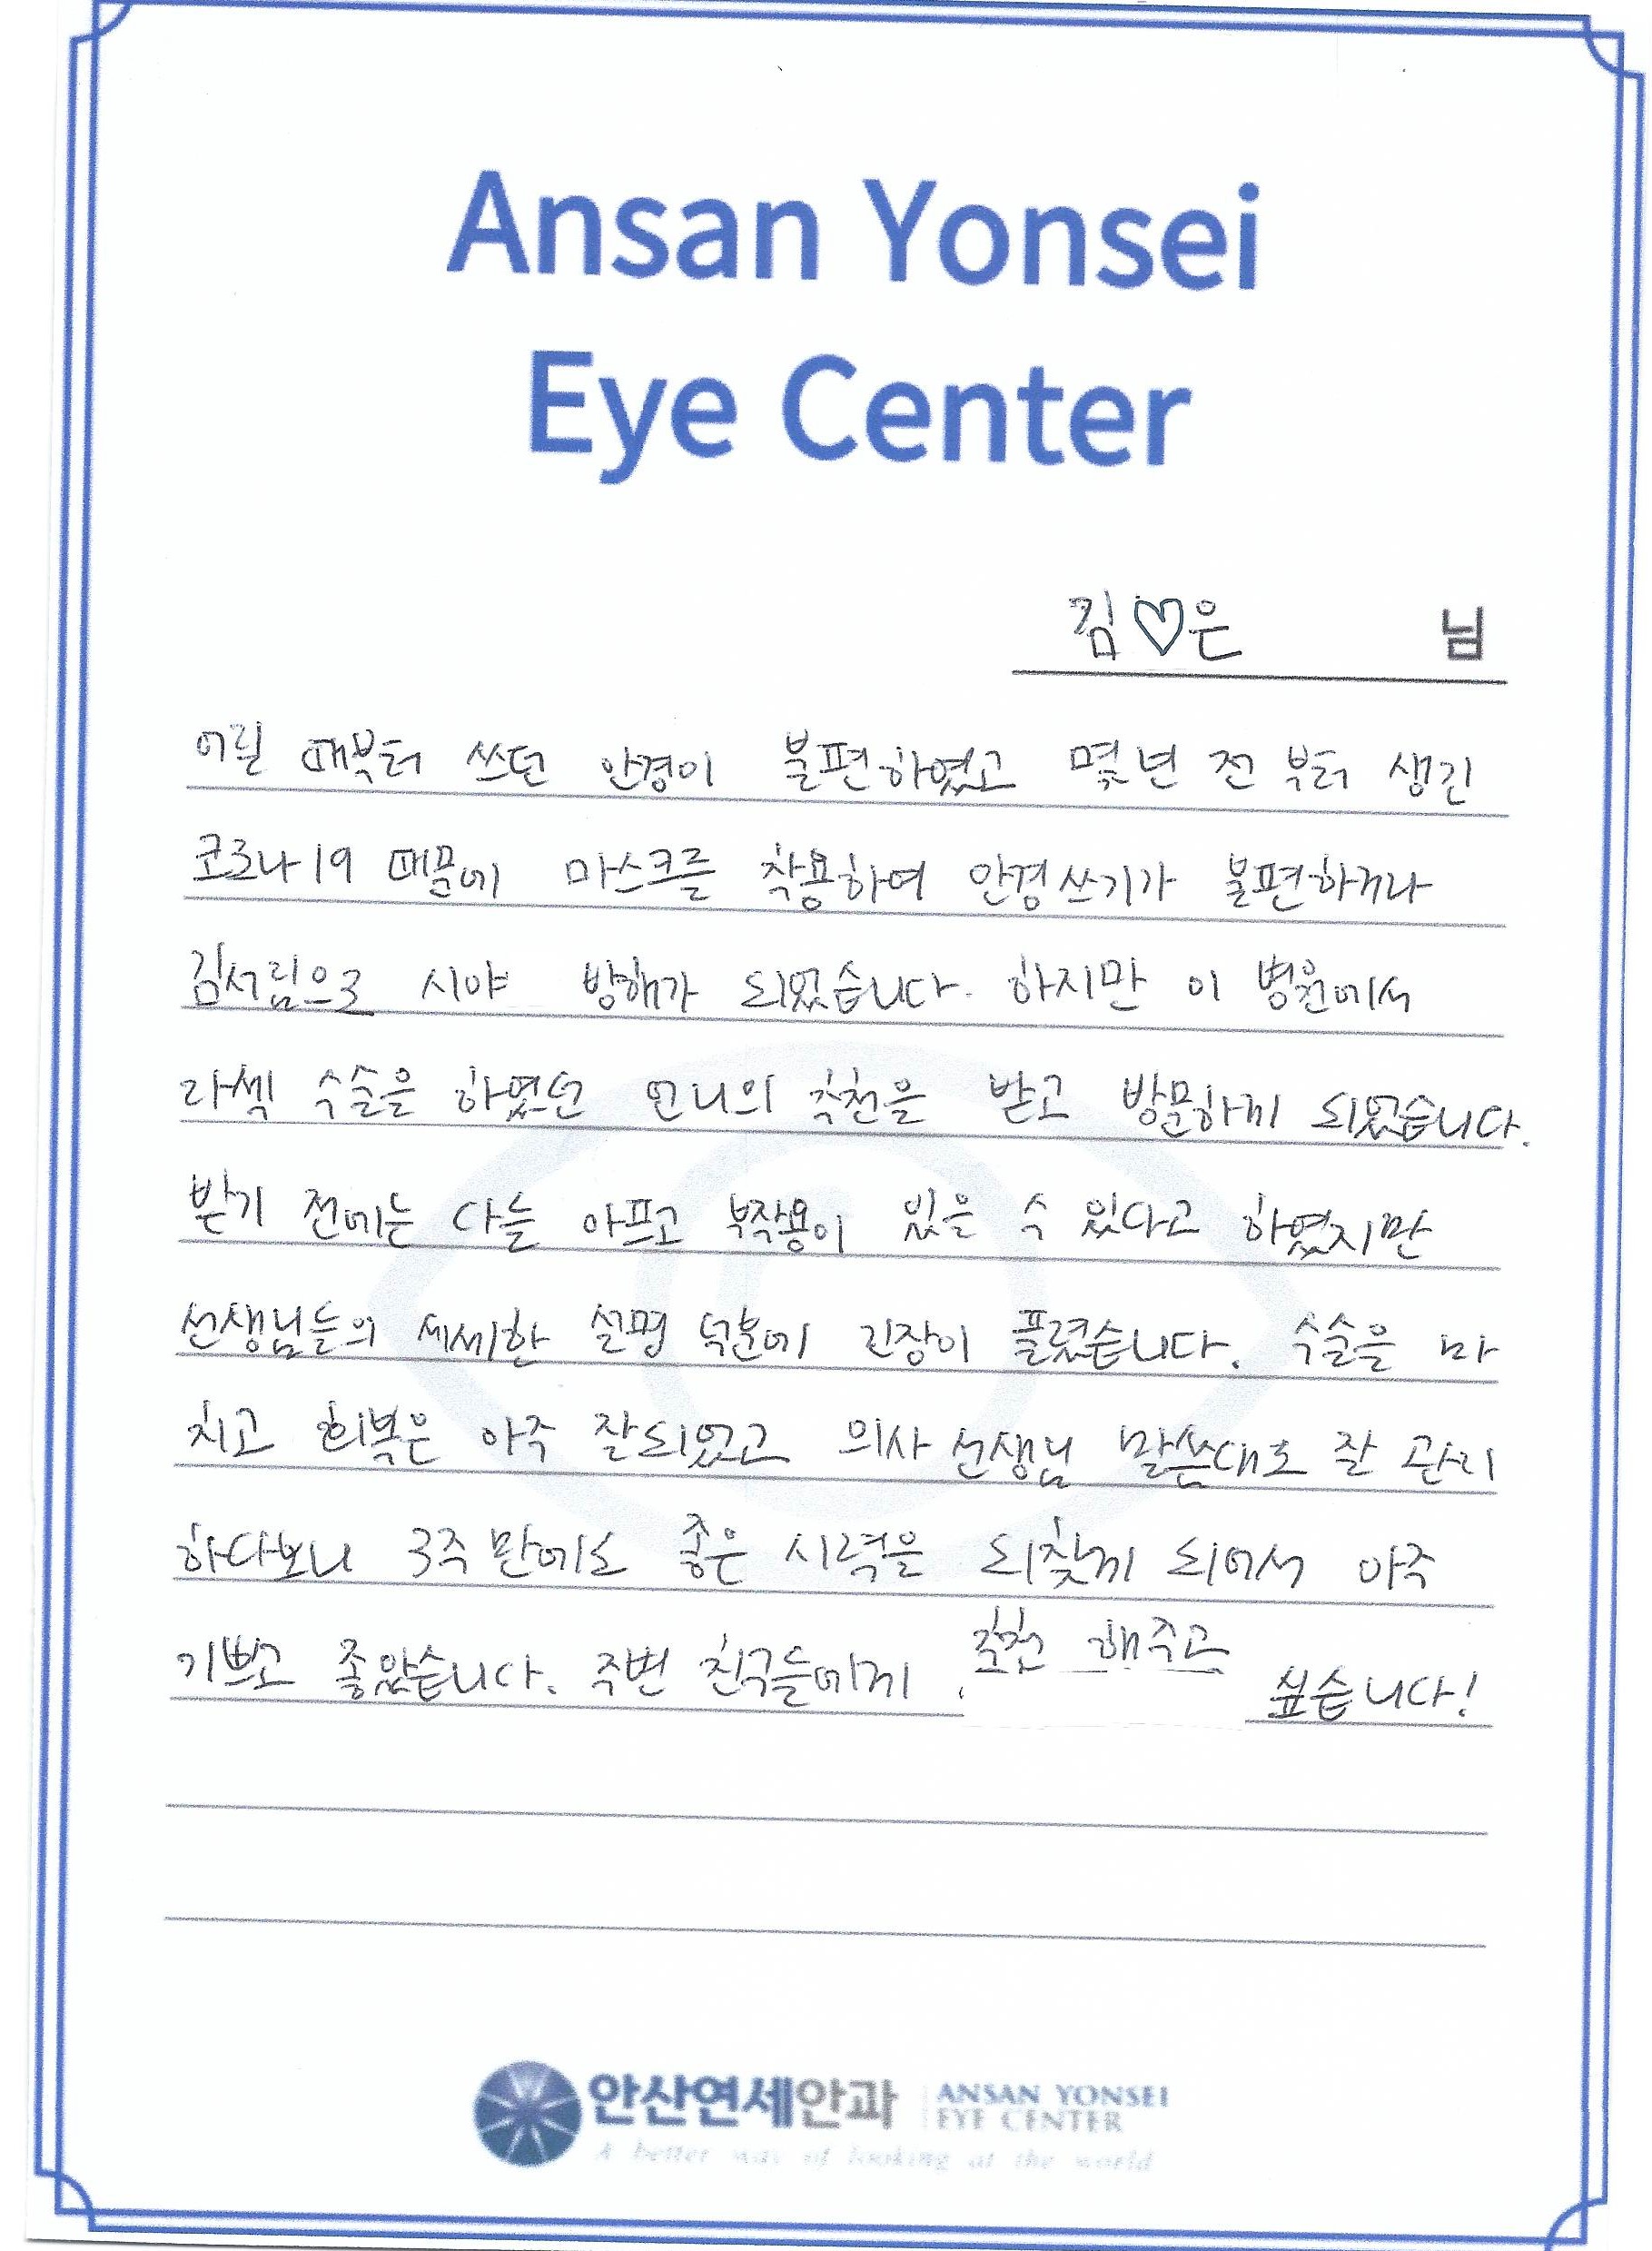 Ansan Yonsei
Eye Center
김♡은 님
어릴 때부터 쓰던 안경이 불편하였고 몇 년 전 부터 생긴
코로나19 때문에 마스크를 착용하여 안경쓰기가 불편하거나
김서림으로 시야 방해가 되었습니다. 하지만 이 병원에서
라섹 수술을 하였던 언니의 추천을 받고 방문하게 되었습니다.
받기 전에는 다들 아프고 부작용이 있을 수 있다고 하였지만
선생님들의 세세한 설명 덕분에 긴장이 풀렸습니다. 수술을 마
치고 회복은 아주 잘되었고 의사 선생님 말씀대로 잘 관리
하다보니 3주 만에도 좋은 시력을 되찾게 되어서 아주
기쁘고 좋았습니다. 주변 친구들에게 추천 해주고 싶습니다!
안산연세안과 ANSAN YONSEI
EYE CENTER
A better way of looking at the world